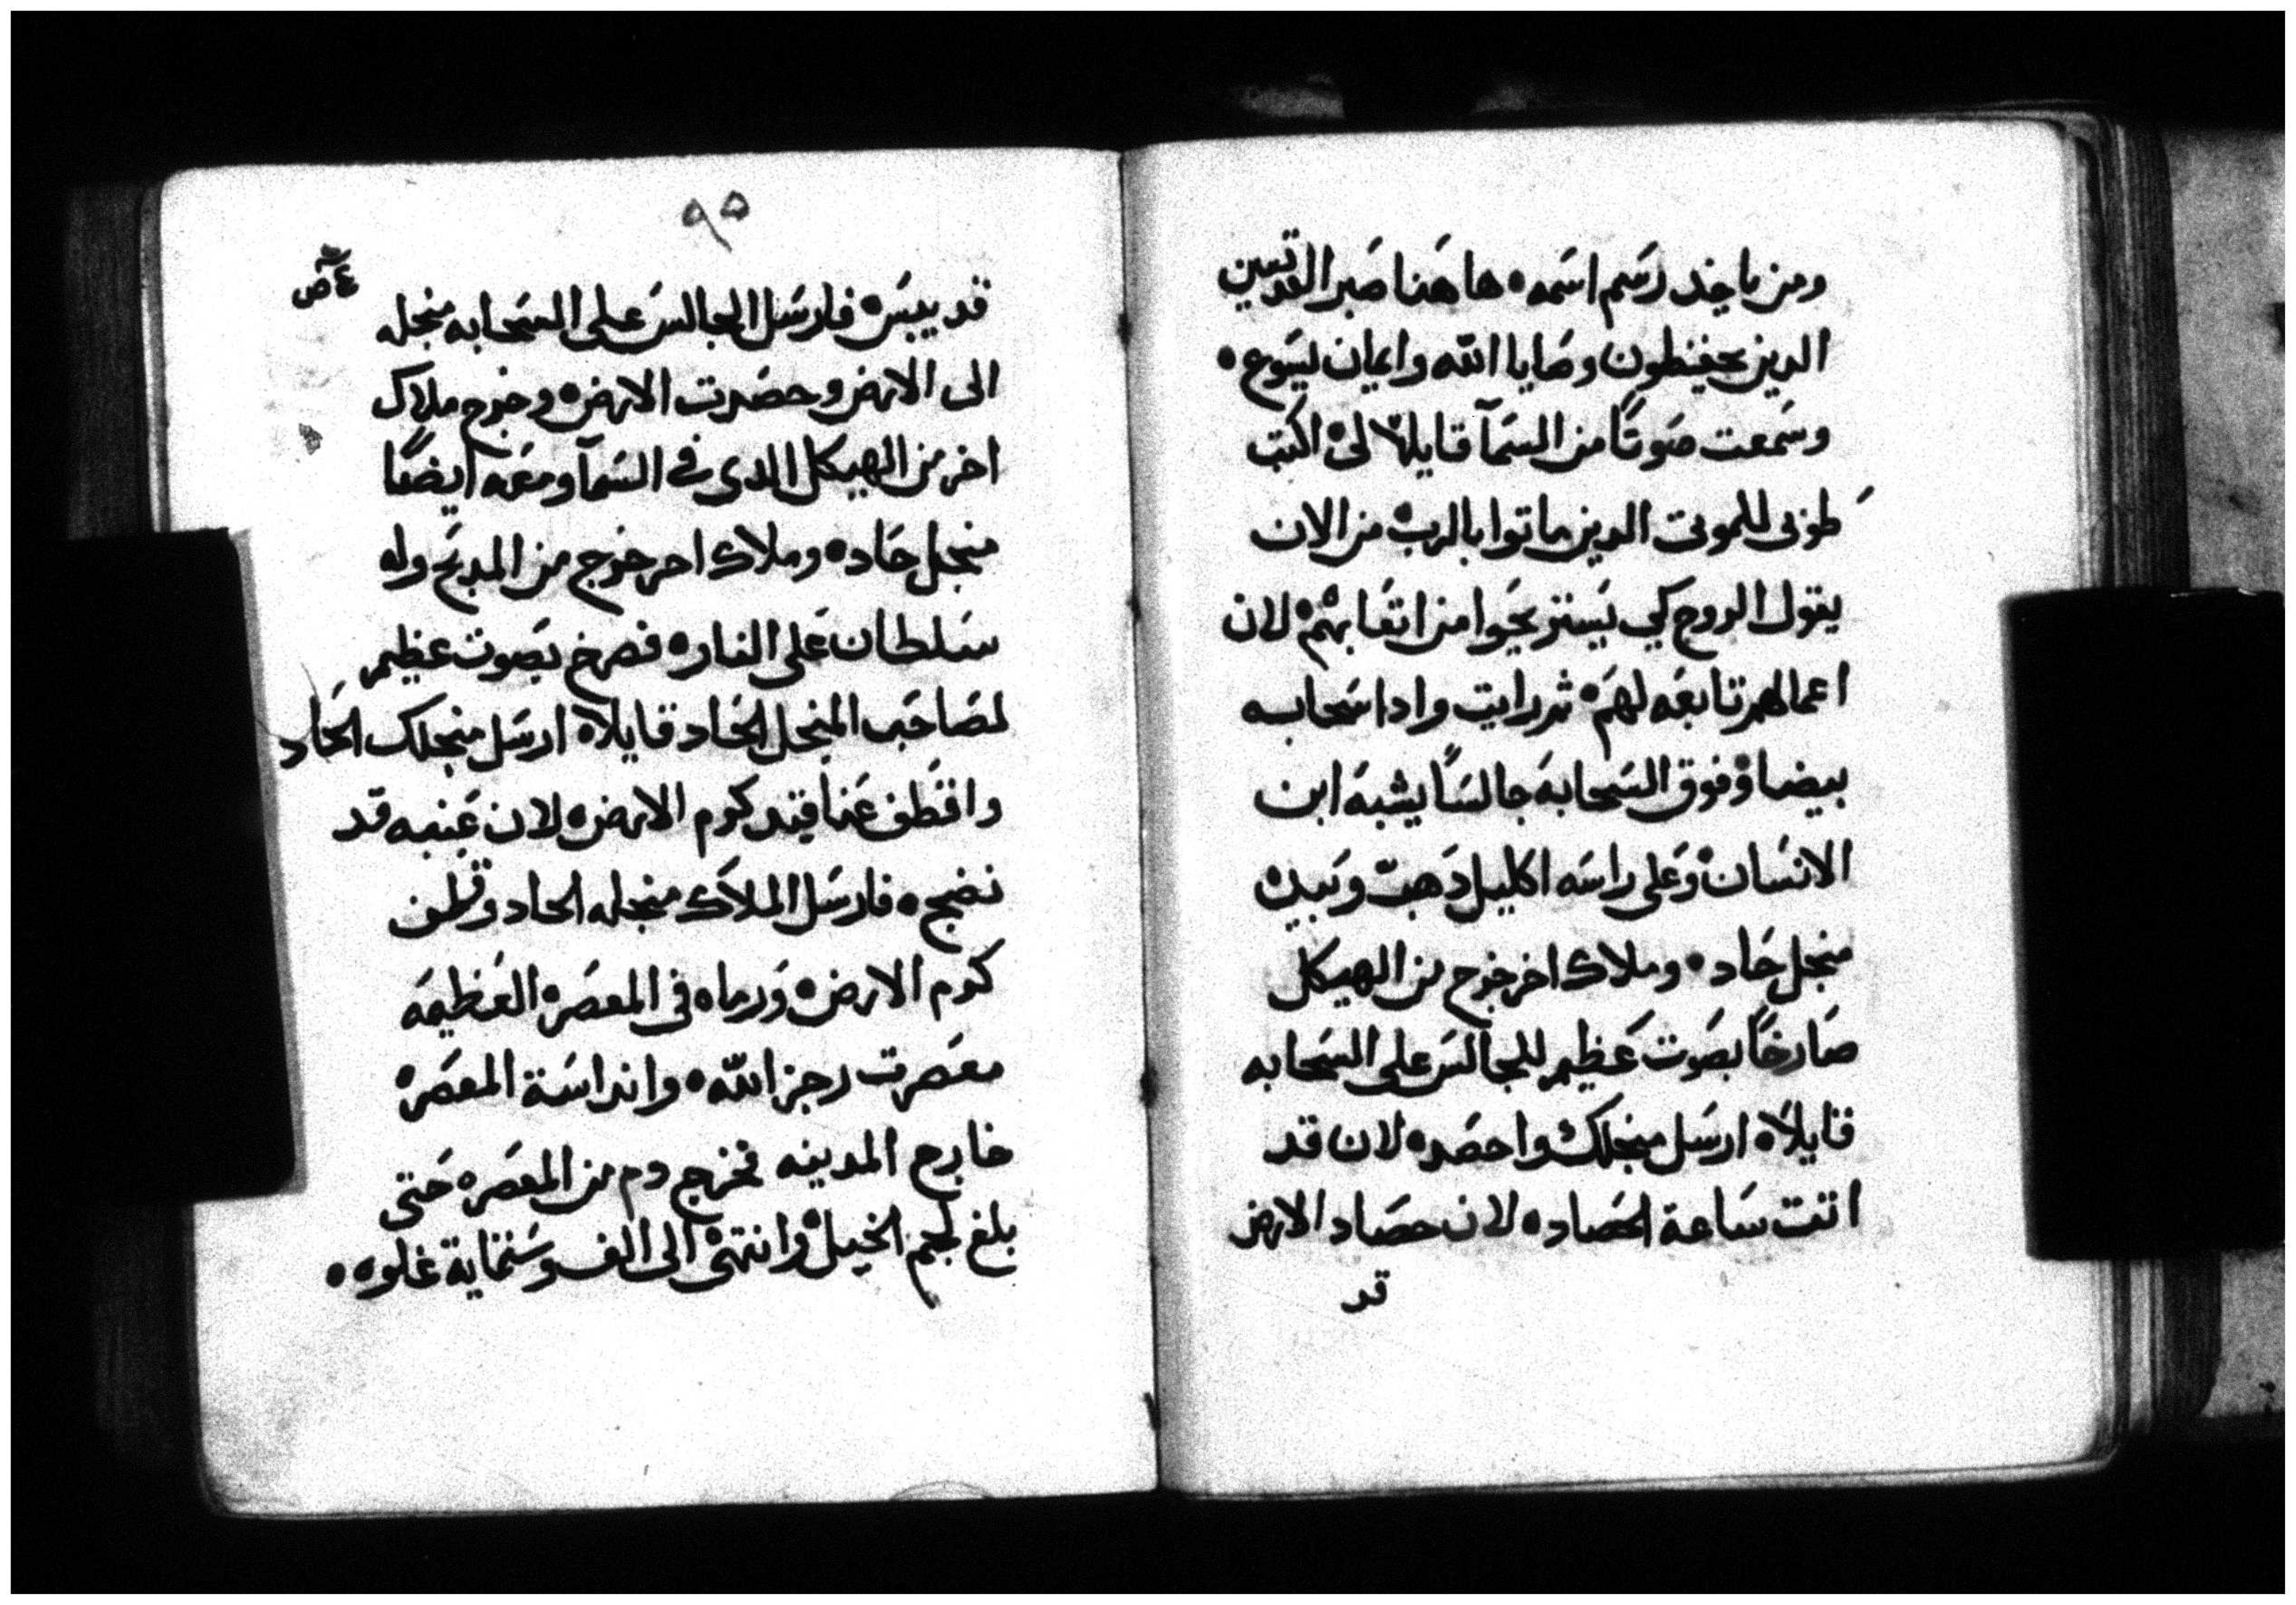 ومن ياخد رسَم اسَمه ه هاهَنا صَبر القديسين
الدين يحفظون وصَايا اللّه وايمان ليسَوع ه
وسَمعت صَوتًا من السَمآ قايلاً لي ه اكتب
طوبى للموتى الدين ماتوا بالرب ه من الان
يقول الروح كي يَستريحَوا من اتعَابهم ه لان
اعمالهم تابعَه لهمَ ه ثم رايت وادا سَحابه
بيضا ه وفوق السَحابهَ جالسَاً يشبهَ ابن
الانسَان ه وعَلى راسَه اكليل دَهب وبَيده
منجل حَاد ه وملاك اخر خرج من الهيكل
صَارخاً بصَوت عَظيم للجالسَ على السَحابه
قايلاً ه ارسَل منجلك واحصَد ه لان قد
اتت سَاعة الحصَاد ه لان حصَاد الارض
قد
٩٥
قد يبسَ ه فارسَل الجالسَ عَلى السَحابه منجله
الى الارض وحصَدت الارض ه وخرج ملاك
اخر من الهيكل الدى في السَمآ ومعَه ايضًا
منجل حَاد ه وملاك اخر خرج من المدبَح وله
سَلطان عَلى النار ه فصرخ بصَوت عظيم
لصَاحَب المنجل الحَاد قايلاً ه ارسَل منجلك الحَاد
واقطف عَناقيد كرم الارض ه لان عَنبه قد
نضج ه فارسَل الملاَك منجله الحاد وقطف
كرم الارض ه وَرماه في المعصَره العَظيمَه
معصَرت رجز اللّه ه وانداسَة المعصَره
خارج المدينه فخرج دم من المعصَره حَتى
بلغ لجم الخيل ه وانتهى الى الف وسَتماية غلوه ه